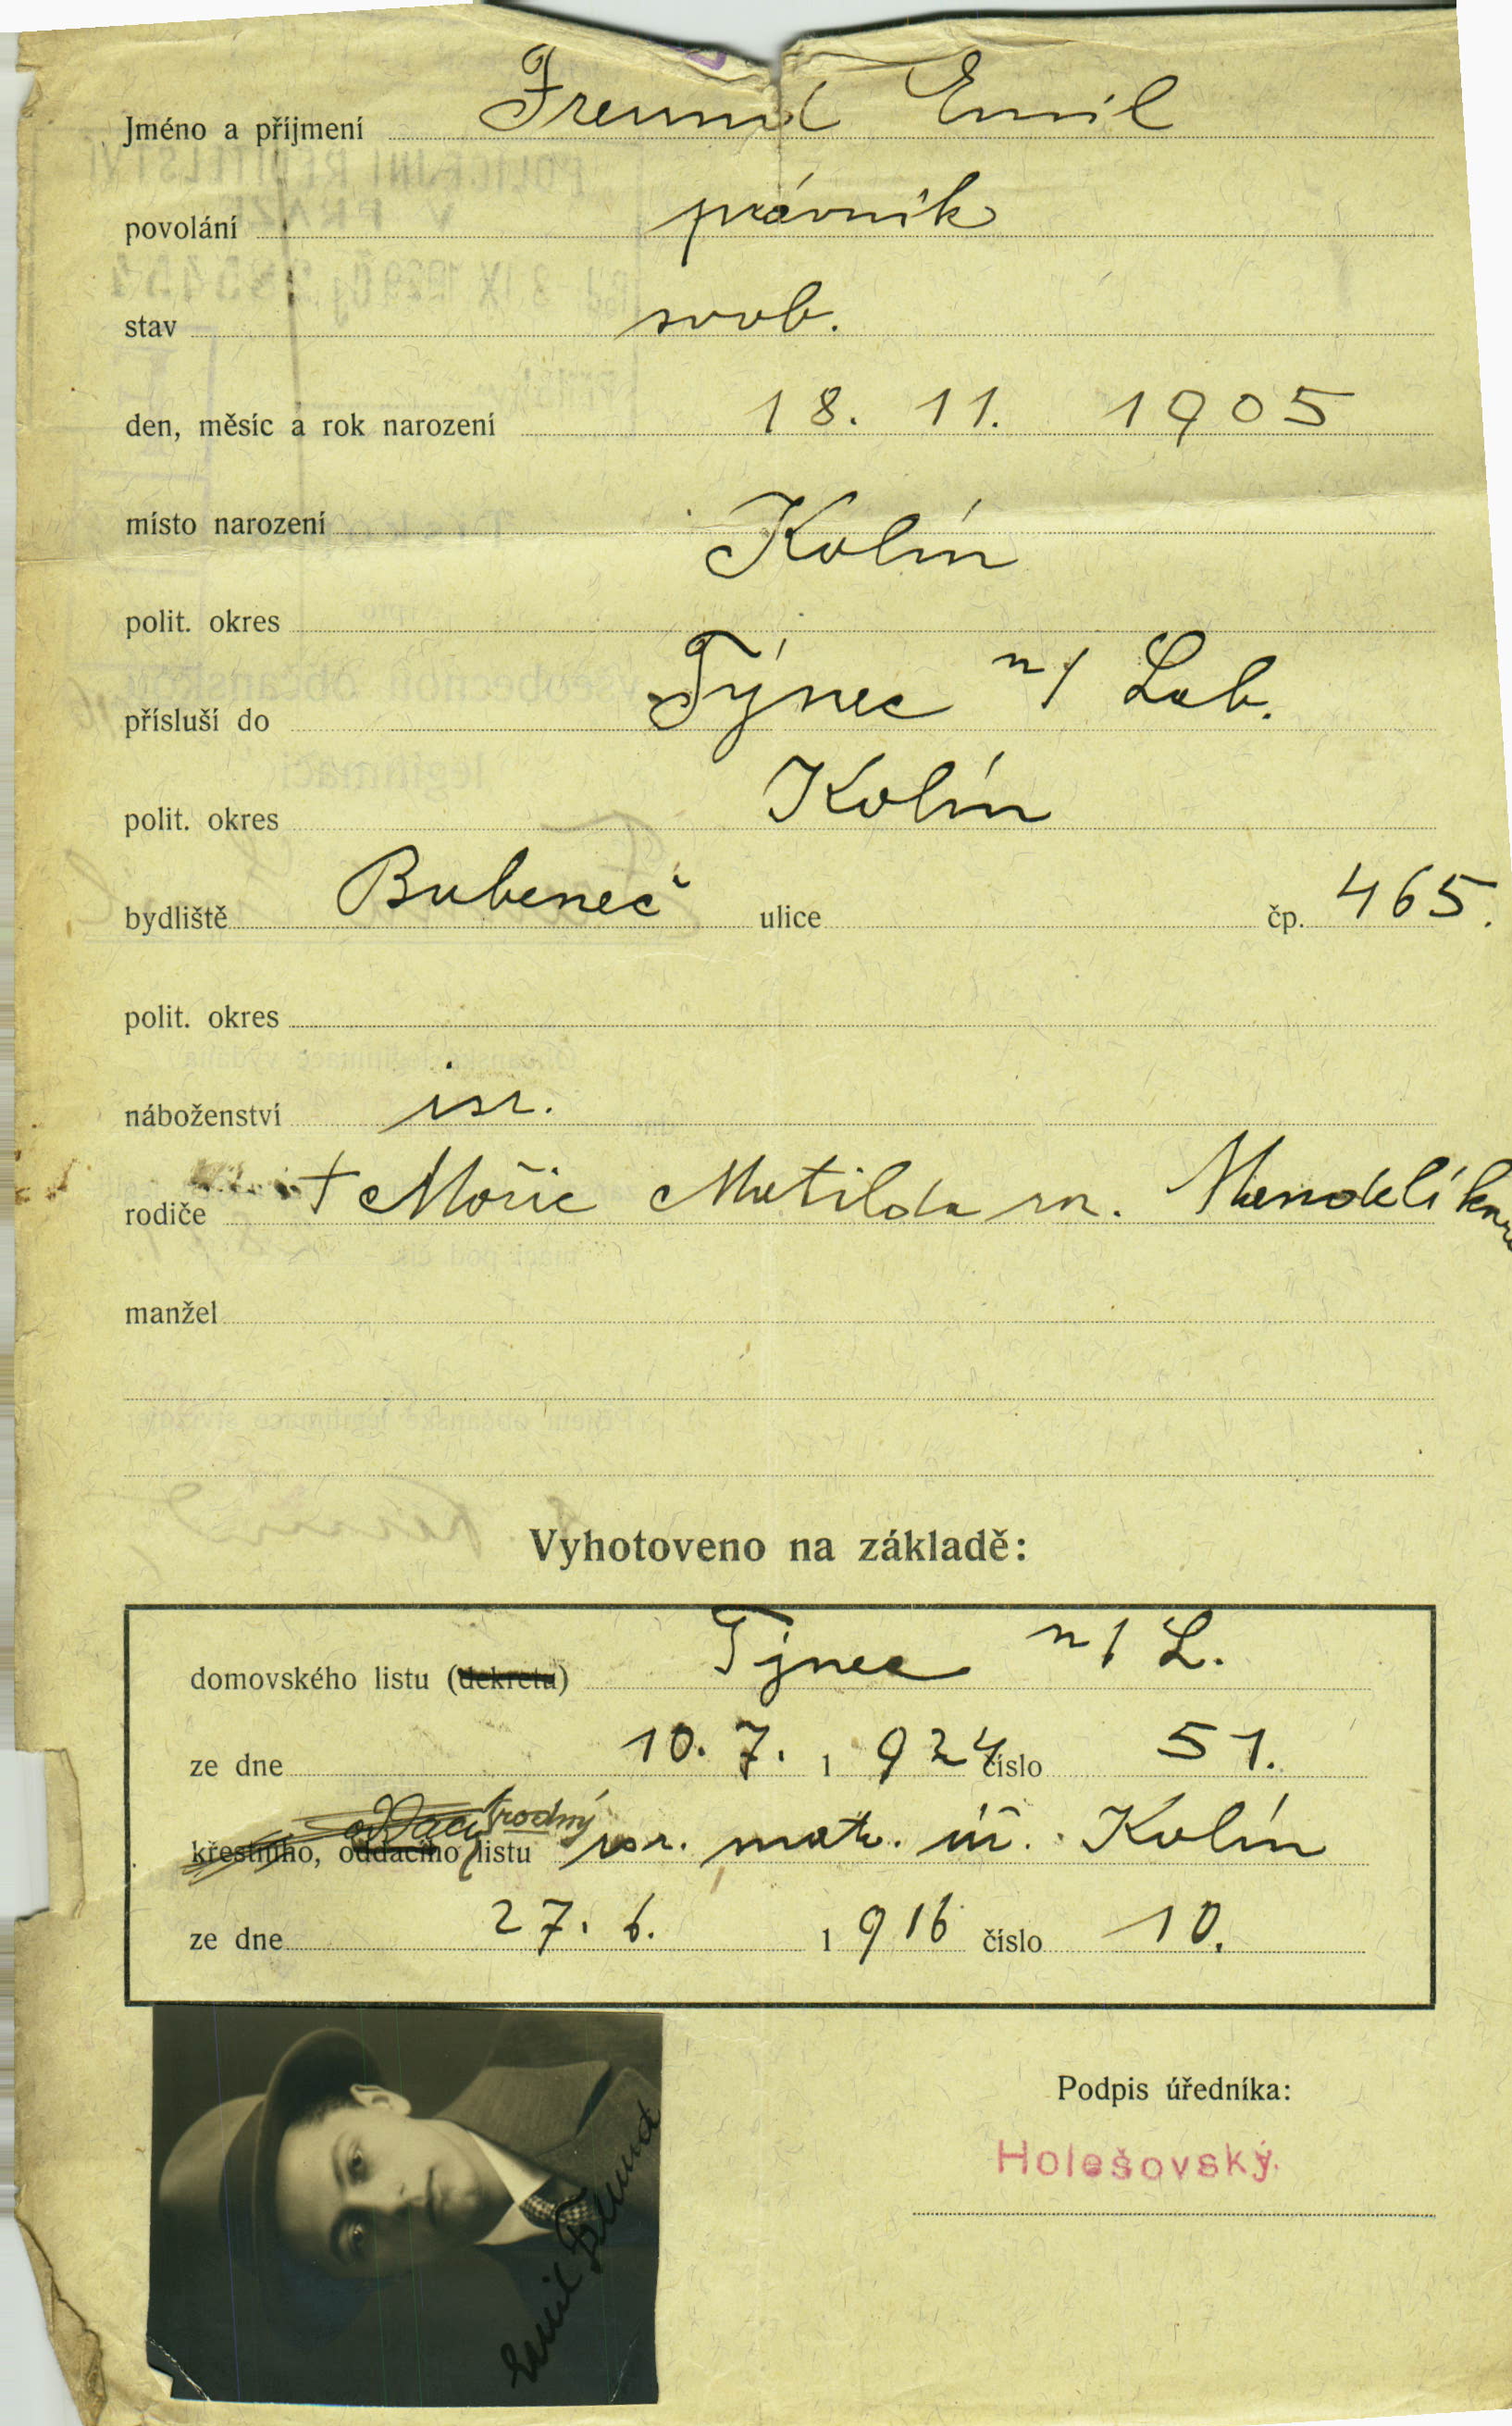 Jméno a příjmení Freund Emil
povolání právník
stav svob.
den, měsíc a rok narození 18. 11. 1905
místo narození Kolín
polit. okres
přísluší do Týnec n/ Lab.
polit. okres Kolín
bydliště Bubeneč ulice čp. 465.
polit. okres
náboženství isr.
rodiče † Mořic Matilda roz. Mandelíková
manžel
Vyhotoveno na základě:
domovského listu (dekretu) Týnec n/ L.
ze dne 10. 7. 1924 číslo 51.
rodný
křestního, oddacího listu isr. matr. úř. Kolín
ze dne 27. 6. 1916 číslo 10.
Podpis úředníka:
Holešovský.
Emil Freund